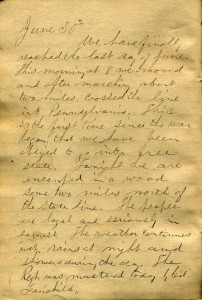 June 30th
We have finally
reached the last day of June
this morning at 8 we moved
and after marching about
two miles, crossed the line
in Pennsylvania. This
is the first time since the war
began that we have been
obliged to go into free
state. Tonight we are
encamped in a wood
some two miles north of
the State line. The people
are loyal and seriously in
earnest. The weather continues
wet, rains at night and
showers during the day. The
Regt. was mustered today by Col.
Fairchild.